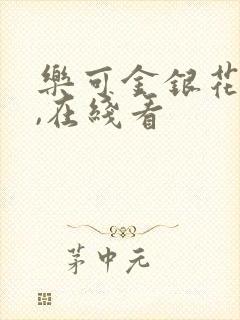 樂可金銀花
,在綫看
茅中元